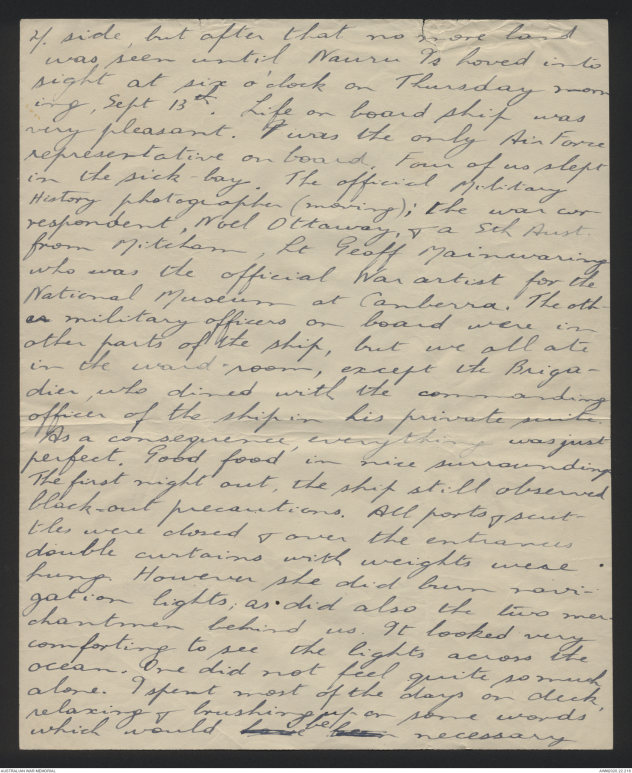 2/. side, but after that no more land
was seen until Nauru Is hoved into
sight at six o'clock on Thursday morn
ing, Sept 13th. Life on board ship was
very pleasant. I was the only Air Force
representative on board. Four of us slept
in the sick-bay. The official Military
History photographer (moving); the war cor-
respondent, Noel Ottaway, & a Sth Aust.
from Mitcham, Lt Geoff Mainwaring
who was the official War artist for the
National Museum at Canberra. The oth-
er military officers on board were in
other parts of the ship, but we all ate
in the ward-room, except the Briga-
dier, who dined with the commanding
officer of the ship in his private suite.
As a consequence, everything was just
perfect. Good food in nice surroundings
The first night out, the ship still observed
black-out precautions. All ports & scut-
tles were closed & over the entrances
double curtains with weights were
hung. However she did burn navi-
gation lights; as did also the two mer-
chantmen behind us. It looked very
comforting to see the lights across the
ocean. One did not feel quite so much
alone. I spent most of the days on deck,
relaxing & brushing up on some words
which would have be been necessary
AUSTRALIAN WAR MEMORIAL